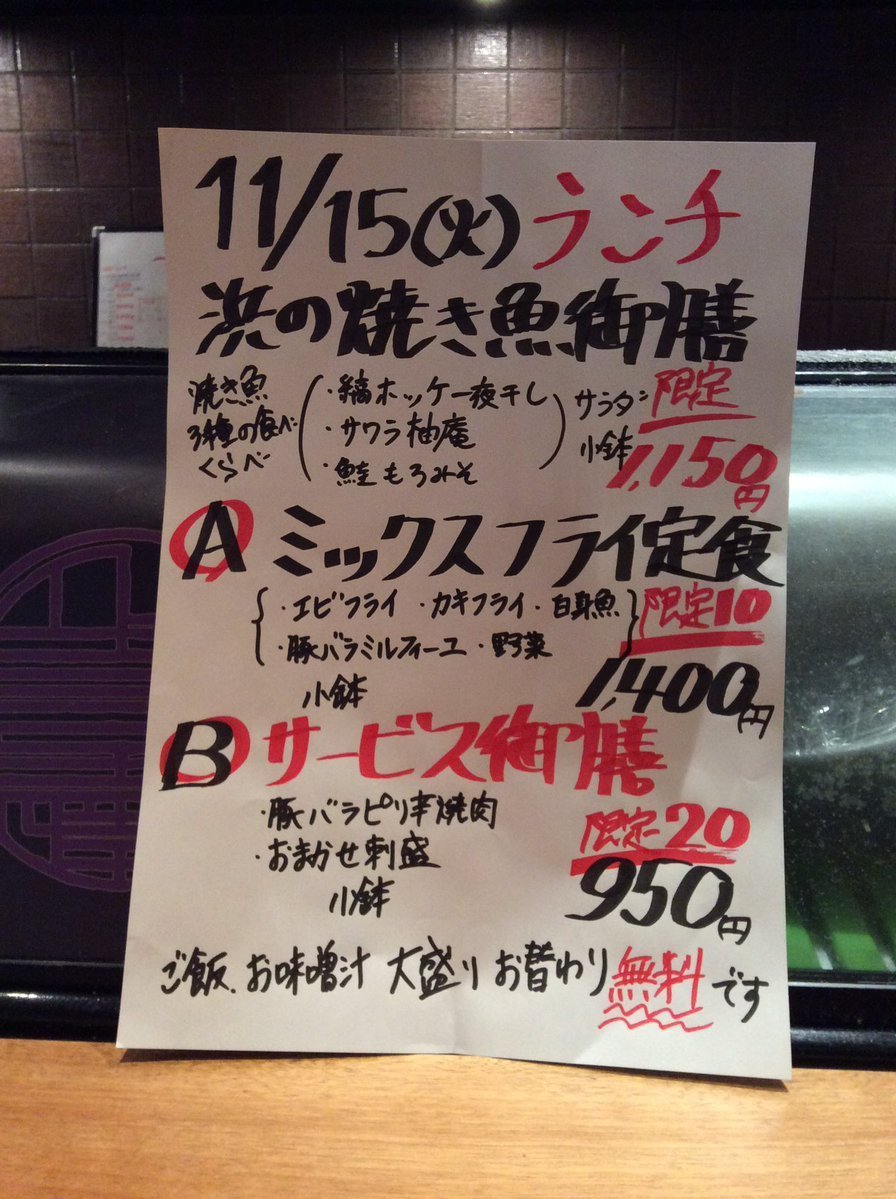 11/15(火) ランチ
浜の焼き魚御膳
焼き魚
3種の食べ
くらべ
・縞ホッケ一夜干し
・サワラ柚庵
・鮭もろみそ
サラダ
小鉢
限定
1,150円
A ミックスフライ定食
・エビフライ ・カキフライ ・白身魚
・豚バラミルフィーユ ・野菜
小鉢
限定10
1,400円
B サービス御膳
・豚バラピリ辛焼肉
・おまかせ刺盛
小鉢
限定20
950円
ご飯、お味噌汁 大盛り お替わり 無料です